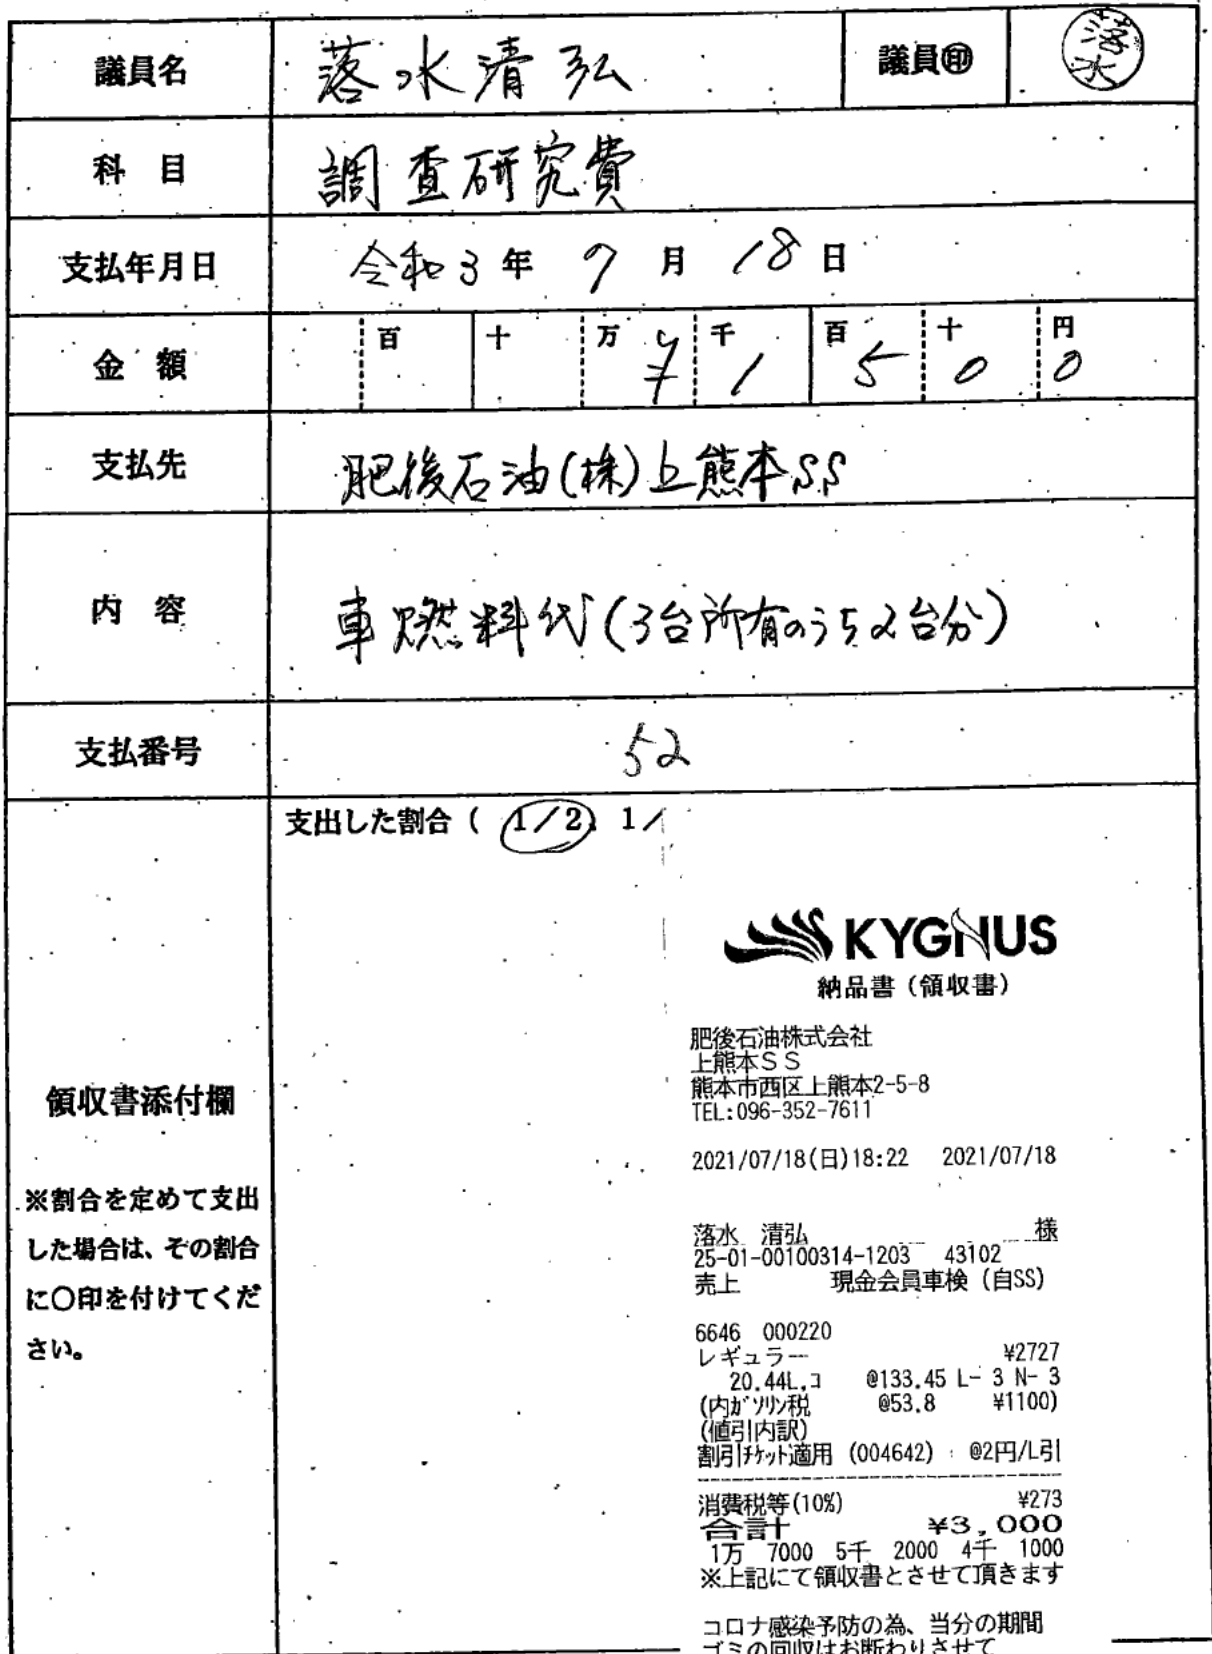 議員名 落水清弘 議員㊞ 落水
科 目 調査研究費
支払年月日 令和3年 7月 18日
金 額 百 十 万 ¥ 千 1 百 5 十 0 円 0
支払先 肥後石油(株)上熊本SS
内 容 車燃料代(3台所有のうち2台分)
支払番号 52
支出した割合( 1/2、1/
領収書添付欄
※割合を定めて支出
した場合は、その割合
に〇印を付けてくだ
さい。
KYGNUS
納品書(領収書)
肥後石油株式会社
上熊本SS
熊本市西区上熊本2-5-8
TEL:096-352-7611
2021/07/18(日)18:22 2021/07/18
落水 清弘 様
25-01-00100314-1203 43102
売上 現金会員車検(自SS)
6646 000220
レギュラー ¥2727
20.44L.コ @133.45 L- 3 N- 3
(内ガソリン税 @53.8 ¥1100)
(値引内訳)
割引チケット適用(004642) @2円/L引
消費税等(10%) ¥273
合計 ¥3,000
1万 7000 5千 2000 4千 1000
※上記にて領収書とさせて頂きます
コロナ感染予防の為、当分の期間
ゴミの回収はお断わりさせて